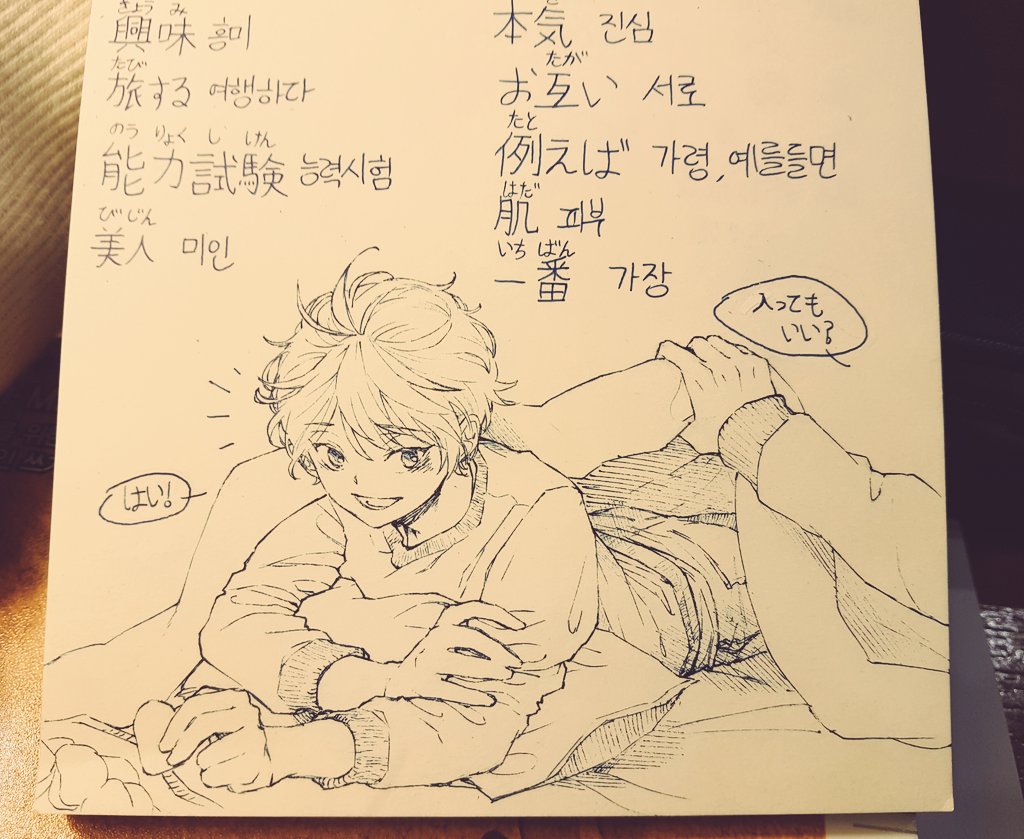 きょうみ
興味 흥미
たび
旅する 여행하다
のうりょくしけん
能力試験 능력시험
びじん
美人 미인
本気 진심
たが
お互い 서로
たと
例えば 가령, 예를들면
はだ
肌 피부
いちばん
一番 가장
入っても
いい?
はい!